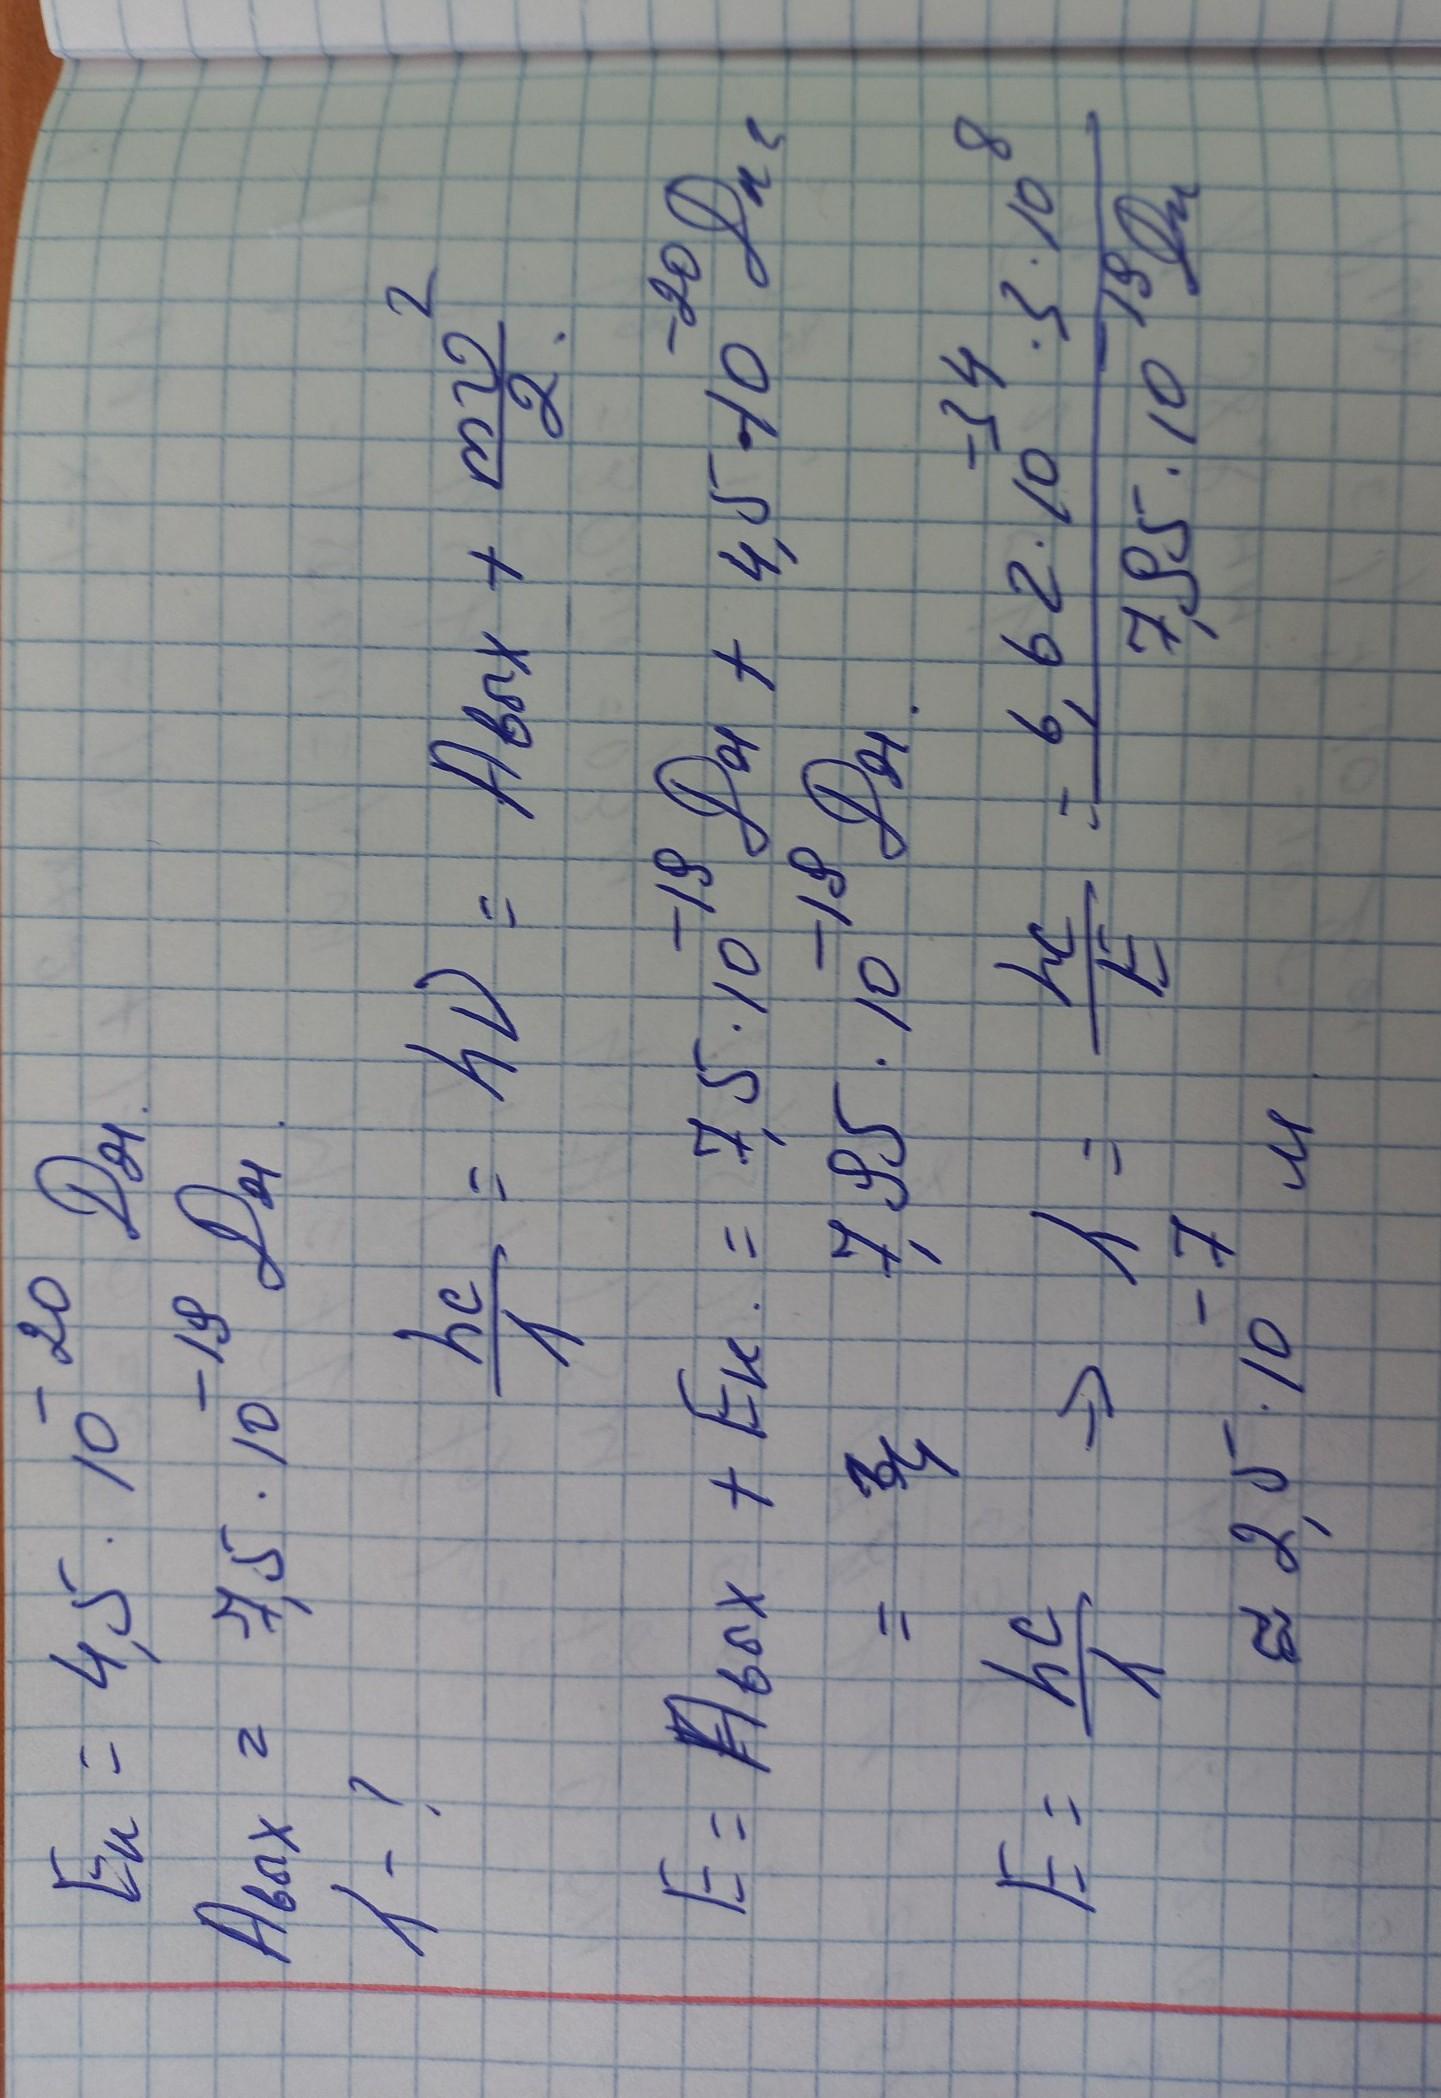 Eк = 4,5 · 10⁻²⁰ Дж.
Aвых = 7,5 · 10⁻¹⁹ Дж.
λ - ?
hc/λ = hν = Aвых + mv²/2.
E = Aвых + Eк. = 7,5 · 10⁻¹⁹ Дж + 4,5 · 10⁻²⁰ Дж =
= 7,95 · 10⁻¹⁹ Дж.
E = hc/λ → λ = hc/E = 6,62 · 10⁻³⁴ · 3 · 10⁸ / 7,95 · 10⁻¹⁹ Дж
≈ 2,5 · 10⁻⁷ м.